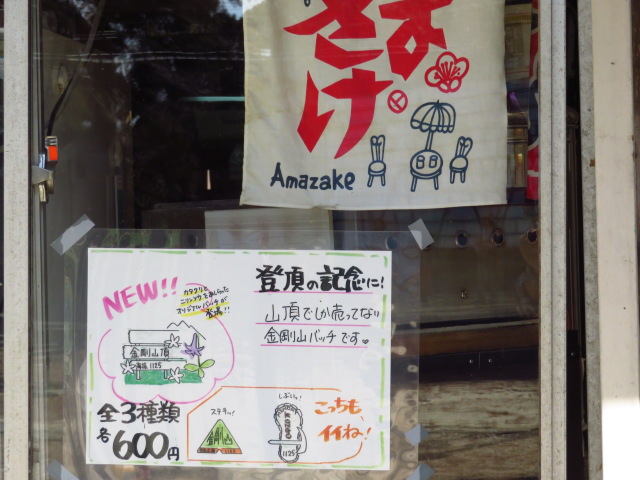 あまざけ
Amazake
NEW!!
カタクリと
ニリンソウをあしらった
オリジナルバッチが
登場!!
登頂の記念に!
山頂でしか売ってない
金剛山バッチです
金剛山頂
海抜 1125
全3種類
各600円
ステキッ!
金剛山
しぶいっ!
1125
こっちも、
イイね!